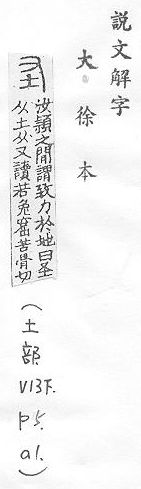 説文解字
大徐本
圣
汝潁之閒謂致力於地曰圣
从土从又讀若兔窟苦骨切
(土部 V13下. P5. a1.)